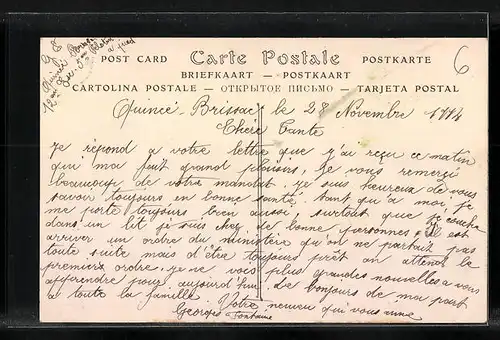 12me
POST CARD
Carte Postale
POSTKARTE
BRIEFKAART — POSTKAART
CARTOLINA POSTALE – ОТКРЫТОЕ ПИСЬМО – TARJETA POSTAL
6
Quincé Brissac le 28 Novembre 1914
Chere Tante
Je répond a votre lettre que j'ai reçu ce matin
qui ma fait grand plaisirs, Je vous remerçi
beaucoup de votre mandat. je suis heureux de vous
savoir toujours en bonne santé. tant qu'a moi, je
me porte toujours bien aussi, surtout que je couche
dans un lit je suis chez de bonne personnes. Il est
arriver un ordre du ministère qu'on ne partait pas
toute suite mais d'être toujours prêt en attend le
premiers ordre, je ne vois plus grandes nouvelles a vous
apprendre pour aujourd'hui. de bonjours de ma part
a toute la famille.
Votre neveu qui vous aime
Georges Fontaine